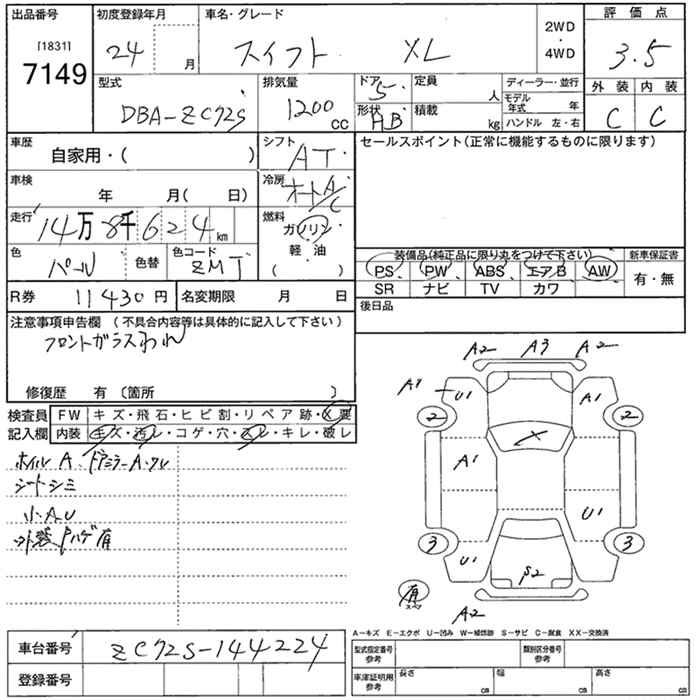 出品番号 初度登録年月 車名・グレード 2WD・4WD 評価点
[1831]
7149 24 月 スイフト XL 3.5
型式 排気量 ドア 定員 ディーラー・並行 外装 内装
DBA-ZC72S 1200cc 5 人 モデル年式 年 C C
形状 積載
AB kg ハンドル 左・右
車歴 自家用・( ) シフト AT セールスポイント(正常に機能するものに限ります)
車検 年 月( 日) 冷房 オートA/C
走行 14万8千624km 燃料 ガソリン 軽・油 ( )
色 パール 色替 色コード ZMT 装備品(純正品に限り丸をつけて下さい) 新車保証書
PS PW ABS エアB AW 有・無
SR ナビ TV カワ
R券 11430円 名変期限 月 日 後日品
注意事項申告欄(不具合内容等は具体的に記入して下さい)
フロントガラスわれ
修復歴 有(箇所 )
検査員 FW キズ・飛石・ヒビ割・リペア跡・X要
記入欄 内装 キズ・汚レ・コゲ・穴・スレ・キレ・破レ
ホイルA、ドアミラーA・ワレ
シートシミ
小A.U
外装ハゲ有
A2 A3 A2
A1 U1 A1
2 2
X
A1
U1
3 U1 3
S2
有 スペア
A2
A-キズ E-エクボ U-凹み W-補修跡 S-サビ C-腐食 XX-交換済
車台番号 ZC72S-144224 型式指定番号 参考 類別区分番号 参考
登録番号 車庫証明用 参考 長さ cm 幅 cm 高さ cm